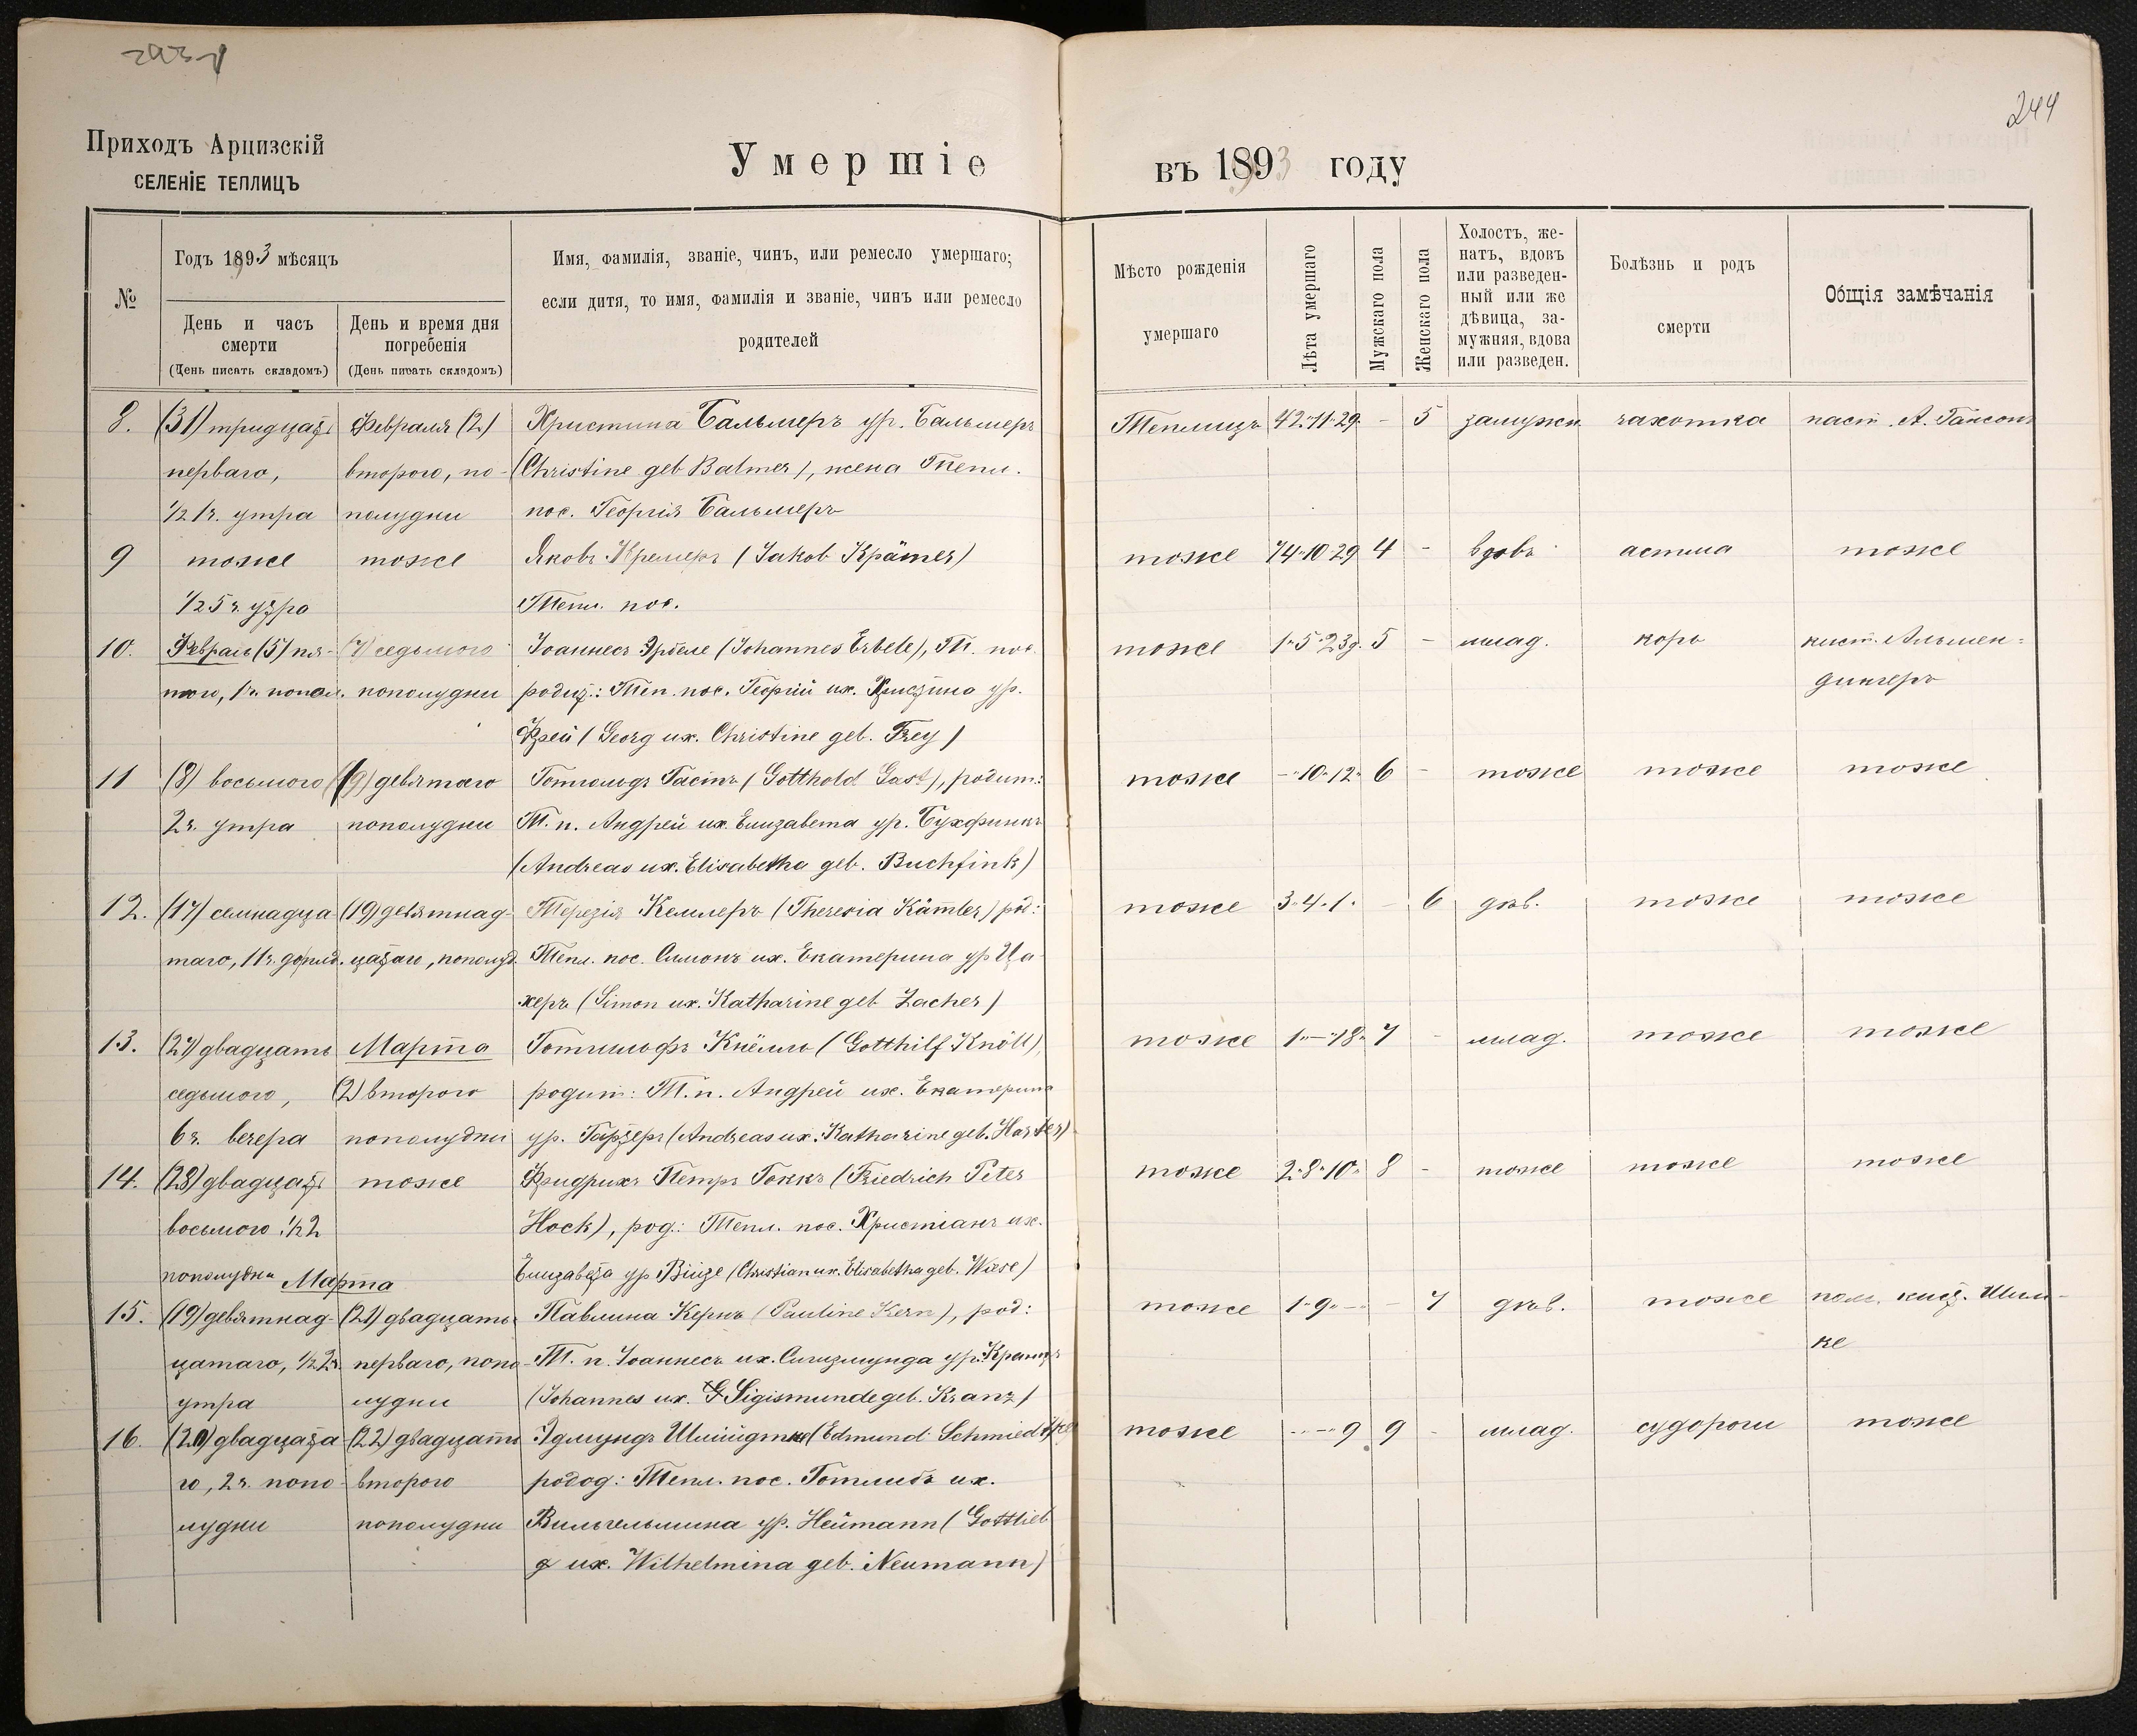 244
Приходъ Арцизскій
СЕЛЕНІЕ ТЕПЛИЦЪ
Умершіе
въ 1893 году
№
Годъ 1893 мѣсяцъ
День и часъ
смерти
(День писать складомъ)
День и время дня
погребенія
(День писать складомъ)
Имя, фамилія, званіе, чинъ, или ремесло умершаго;
если дитя, то имя, фамилія и званіе, чинъ или ремесло
родителей
Мѣсто рожденія
умершаго
Лѣта умершаго
Мужскаго пола
Женскаго пола
Холостъ, же-
натъ, вдовъ
или разведен-
ный или же
дѣвица, за-
мужняя, вдова
или разведен.
Болѣзнь и родъ
смерти
Общія замѣчанія
8. (31) тридцать Февраля (2) Христина Бальмеръ ур. Бальмеръ Теплицъ 42 11 29 - 5 замужн. чахотка паст. А. Гансонъ
перваго, второго, по- (Christine geb Balmer), жена Тепл.
1/2 1 ч. утра полудни пос. Георгія Бальмеръ
9 тоже тоже Яковъ Кремеръ (Jakob Krämer) тоже 74 10 29 4 - вдовъ астма тоже
1/2 5 ч. утра Тепл. пос.
10. Февраль (5) пя- (7) седьмого Іоаннесъ Эрбеле (Johannes Erbele), Т. пос. тоже 1 5 23 д. 5 - млад. корь кист. Альмен=
таго, 1 ч. попол. пополудни родит.: Теп. пос. Георгій ux. Христина ур. дингеръ
Фрей (Georg ux. Christine geb. Frey)
11 (8) восьмого (9) девятаго Готгольдъ Гастъ (Gotthold Gast), родит.: тоже - 10 12 6 - тоже тоже тоже
2 ч. утра пополудни Т. п. Андрей ux. Елизавета ур. Бухфинкъ
(Andreas ux. Elisabetha geb. Buchfink)
12. (17) семнадца- (19) девятнад- Терезія Кемлеръ (Theresia Kämler) род: тоже 3 4 1 - 6 дѣв. тоже тоже
таго, 11 ч. до цатаго, пополуд. Тепл. пос. Симонъ ux. Екатерина ур Ца-
херъ (Simon ux. Katharine geb Zacher)
13. (27) двадцать Марта Готгильфъ Кнёлль (Gotthilf Knöll), тоже 1 - 18 7 - млад. тоже тоже
седьмого, (2) второго родит: Т. п. Андрей ux. Екатерина
6 ч. вечера пополудни ур. Гартеръ (Andreas ux. Katharine geb. Harter)
14. (28) двадцать тоже Фридрихъ Петръ Гоккъ (Friedrich Peter тоже 2 8 10 8 - тоже тоже тоже
восьмого 1/2 2 Hock), род.: Тепл. пос. Христіанъ ux.
пополудни Марта Елизавета ур Визе (Christian ux. Elisabetha geb. Wiese)
15. (19) девятнад- (21) двадцать Павлина Кернъ (Pauline Kern), род: тоже 1 9 - 7 дѣв. тоже пом. кист. Шим-
цатаго, 1/2 2 ч. перваго, попо- Т. п. Іоаннесъ ux. Сигизмунда ур. Кранцъ ке
утра лудни (Johannes ux. Sigismunde geb. Kranz)
16. (20) двадцата- (22) двадцать Эдмундъ Шмидтке (Edmund Schmiedtke) тоже - - 9 9 - млад. судороги тоже
го, 2 ч. попо- второго родод: Тепл. пос. Готлибъ ux.
лудни пополудни Вильгельмина ур. Нейmann (Gottlieb
ux. Wilhelmina geb. Neumann)